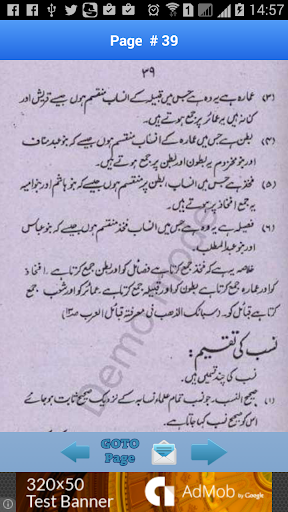 14:57
Page # 39
۳۹
(۳) عمارہ ہے یہ وہ ہے جس میں قبیلہ کے انساب منقسم ہوں جیسے قریش اور
کنانہ ہیں یہ عمائر پر جمع ہوتے ہیں۔
(۴) بطن ہے جس میں عمارہ کے انساب منقسم ہوں جیسے کہ بنو عبد مناف
اور بنو مخزوم یہ بطون اور ابطن پر جمع ہوتے ہیں۔
(۵) فخذ ہے جس میں انساب، بطن پر منقسم ہوں جیسے کہ بنو ہاشم اور بنو امیہ
یہ جمع افخاذ پر ہوتے ہیں۔
(۶) فصیلہ ہے یہ وہ ہے جس میں انساب فخذ منقسم ہوں جیسے کہ بنو عباس
اور بنو عبد المطلب۔
خلاصہ یہ ہے کہ فخذ جمع کرتا ہے فصائل کو اور بطن جمع کرتا ہے۔ افخاذ
کو اور عمارہ جمع کرتا ہے بطون کو اور قبیلہ جمع کرتا ہے عمائر کو اور شعب جمع
کرتا ہے قبائل کو۔ (سبائک الذھب فی معرفۃ قبائل العرب
نسب کی تقسیم:
نسب کی چند قسمیں ہیں۔
(۱) صحیح النسب۔ جو نسب تمام علماء نسابہ کے نزدیک صحیح ثابت ہو جائے
اس کو صحیح نسب کہا جاتا ہے۔
GOTO
Page
320×50
Test Banner
AdMob by Google